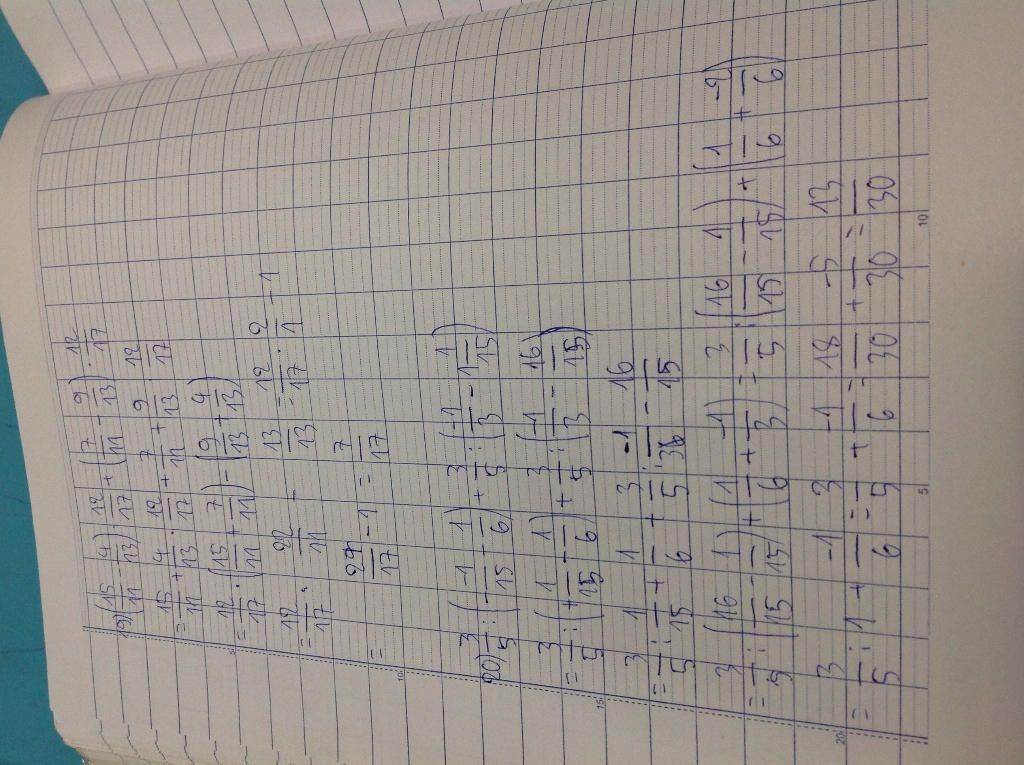 19) (15/11 - 4/13) · 12/17 + (7/11 - 9/13) · 12/17
= 15/11 + 4/13 · 12/17 + 7/11 + 9/13 · 12/17
= 12/17 · (15/11 + 7/11) - (9/13 + 4/13)
= 12/17 · 22/11 - 13/13 = 12/17 · 2/1 - 1
= 24/17 - 1 = 7/17
20) 3/5 : (-1/15 - 1/6) + 3/5 : (-1/3 - 1 1/15)
= 3/5 : (+1/15 - 1/6) + 3/5 : (-1/3 - 16/15)
= 3/5 : 1/15 + 1/6 + 3/5 : -1/3 - 16/15
= 3/5 : (16/15 - 1/15) + (1/6 + -1/3) = 3/5 : (16/15 - 1/15) + (1/6 + -2/6)
= 3/5 : 1 + -1/6 = 3/5 + -1/6 = 18/30 + -5/30 = 13/30
5
10
15
20
5
10